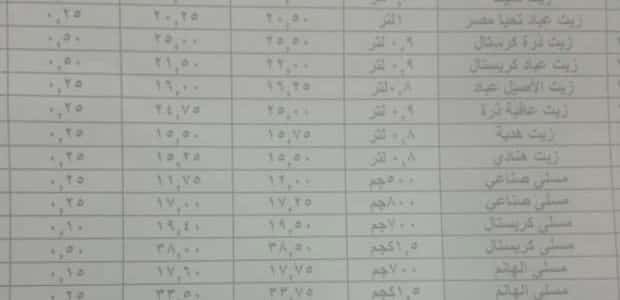 زيت عباد تحيا مصر ١لتر ٢٠,٥٠ ٢٠,٢٥ ٠,٢٥
زيت ذرة كرستال ٠,٩ لتر ٢٥,٥٠ ٢٥,٠٠ ٠,٥٠
زيت عباد كريستال ٠,٩ لتر ٢٢,٠٠ ٢١,٥٠ ٠,٥٠
زيت الأصيل عباد ٠,٨لتر ١٦,٢٥ ١٦,٠٠ ٠,٢٥
زيت عافية ذرة ٠,٩ لتر ٢٥,٠٠ ٢٤,٧٥ ٠,٢٥
زيت هدية ٠,٨ لتر ١٥,٧٥ ١٥,٥٠ ٠,٢٥
زيت هنادي ٠,٨ لتر ١٥,٥٠ ١٥,٢٥ ٠,٢٥
مسلي صناعي ٥٠٠جم ١٢,٠٠ ١١,٧٥ ٠,٢٥
مسلي صناعي ٨٠٠جم ١٧,٢٥ ١٧,٠٠ ٠,٢٥
مسلي كريستال ٧٠٠جم ١٩,٥٠ ١٩,٤٠ ٠,١٠
مسلي كريستال ١,٥كجم ٣٨,٥٠ ٣٨,٠٠ ٠,٥٠
مسلي الهانم ٧٠٠جم ١٧,٧٥ ١٧,٦٠ ٠,١٥
مسلي الهانم ١,٥كجم ٣٣,٧٥ ٣٣,٥٠ ٠,٢٥